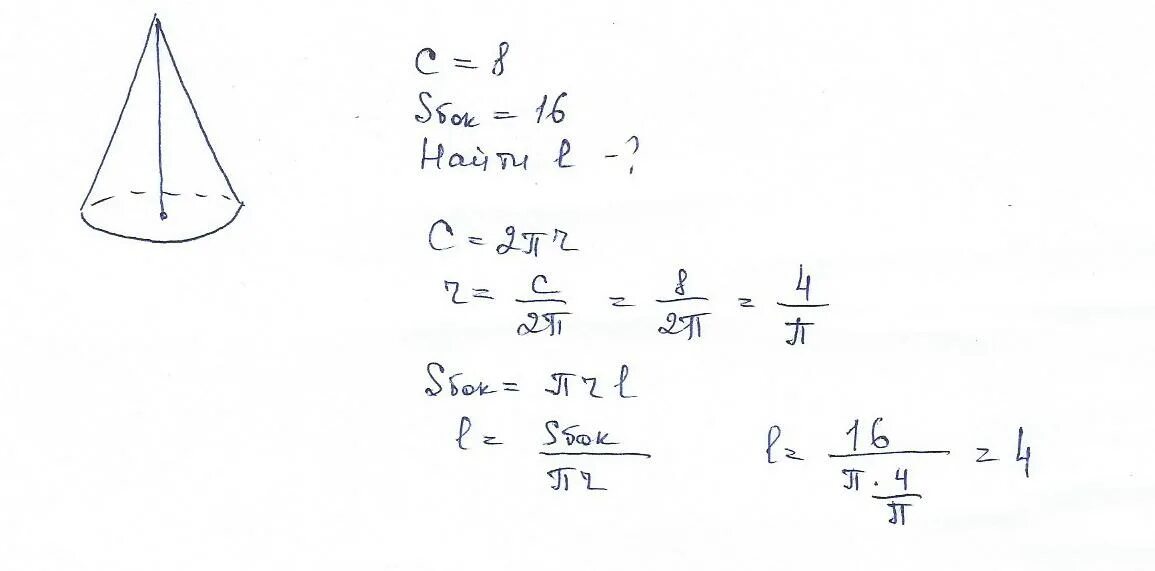 C = 8
Sбок = 16
Найти l - ?
C = 2πr
r = C/2π = 8/2π = 4/π
Sбок = πrl
l = Sбок/πr
l = 16/(π · 4/π) = 4